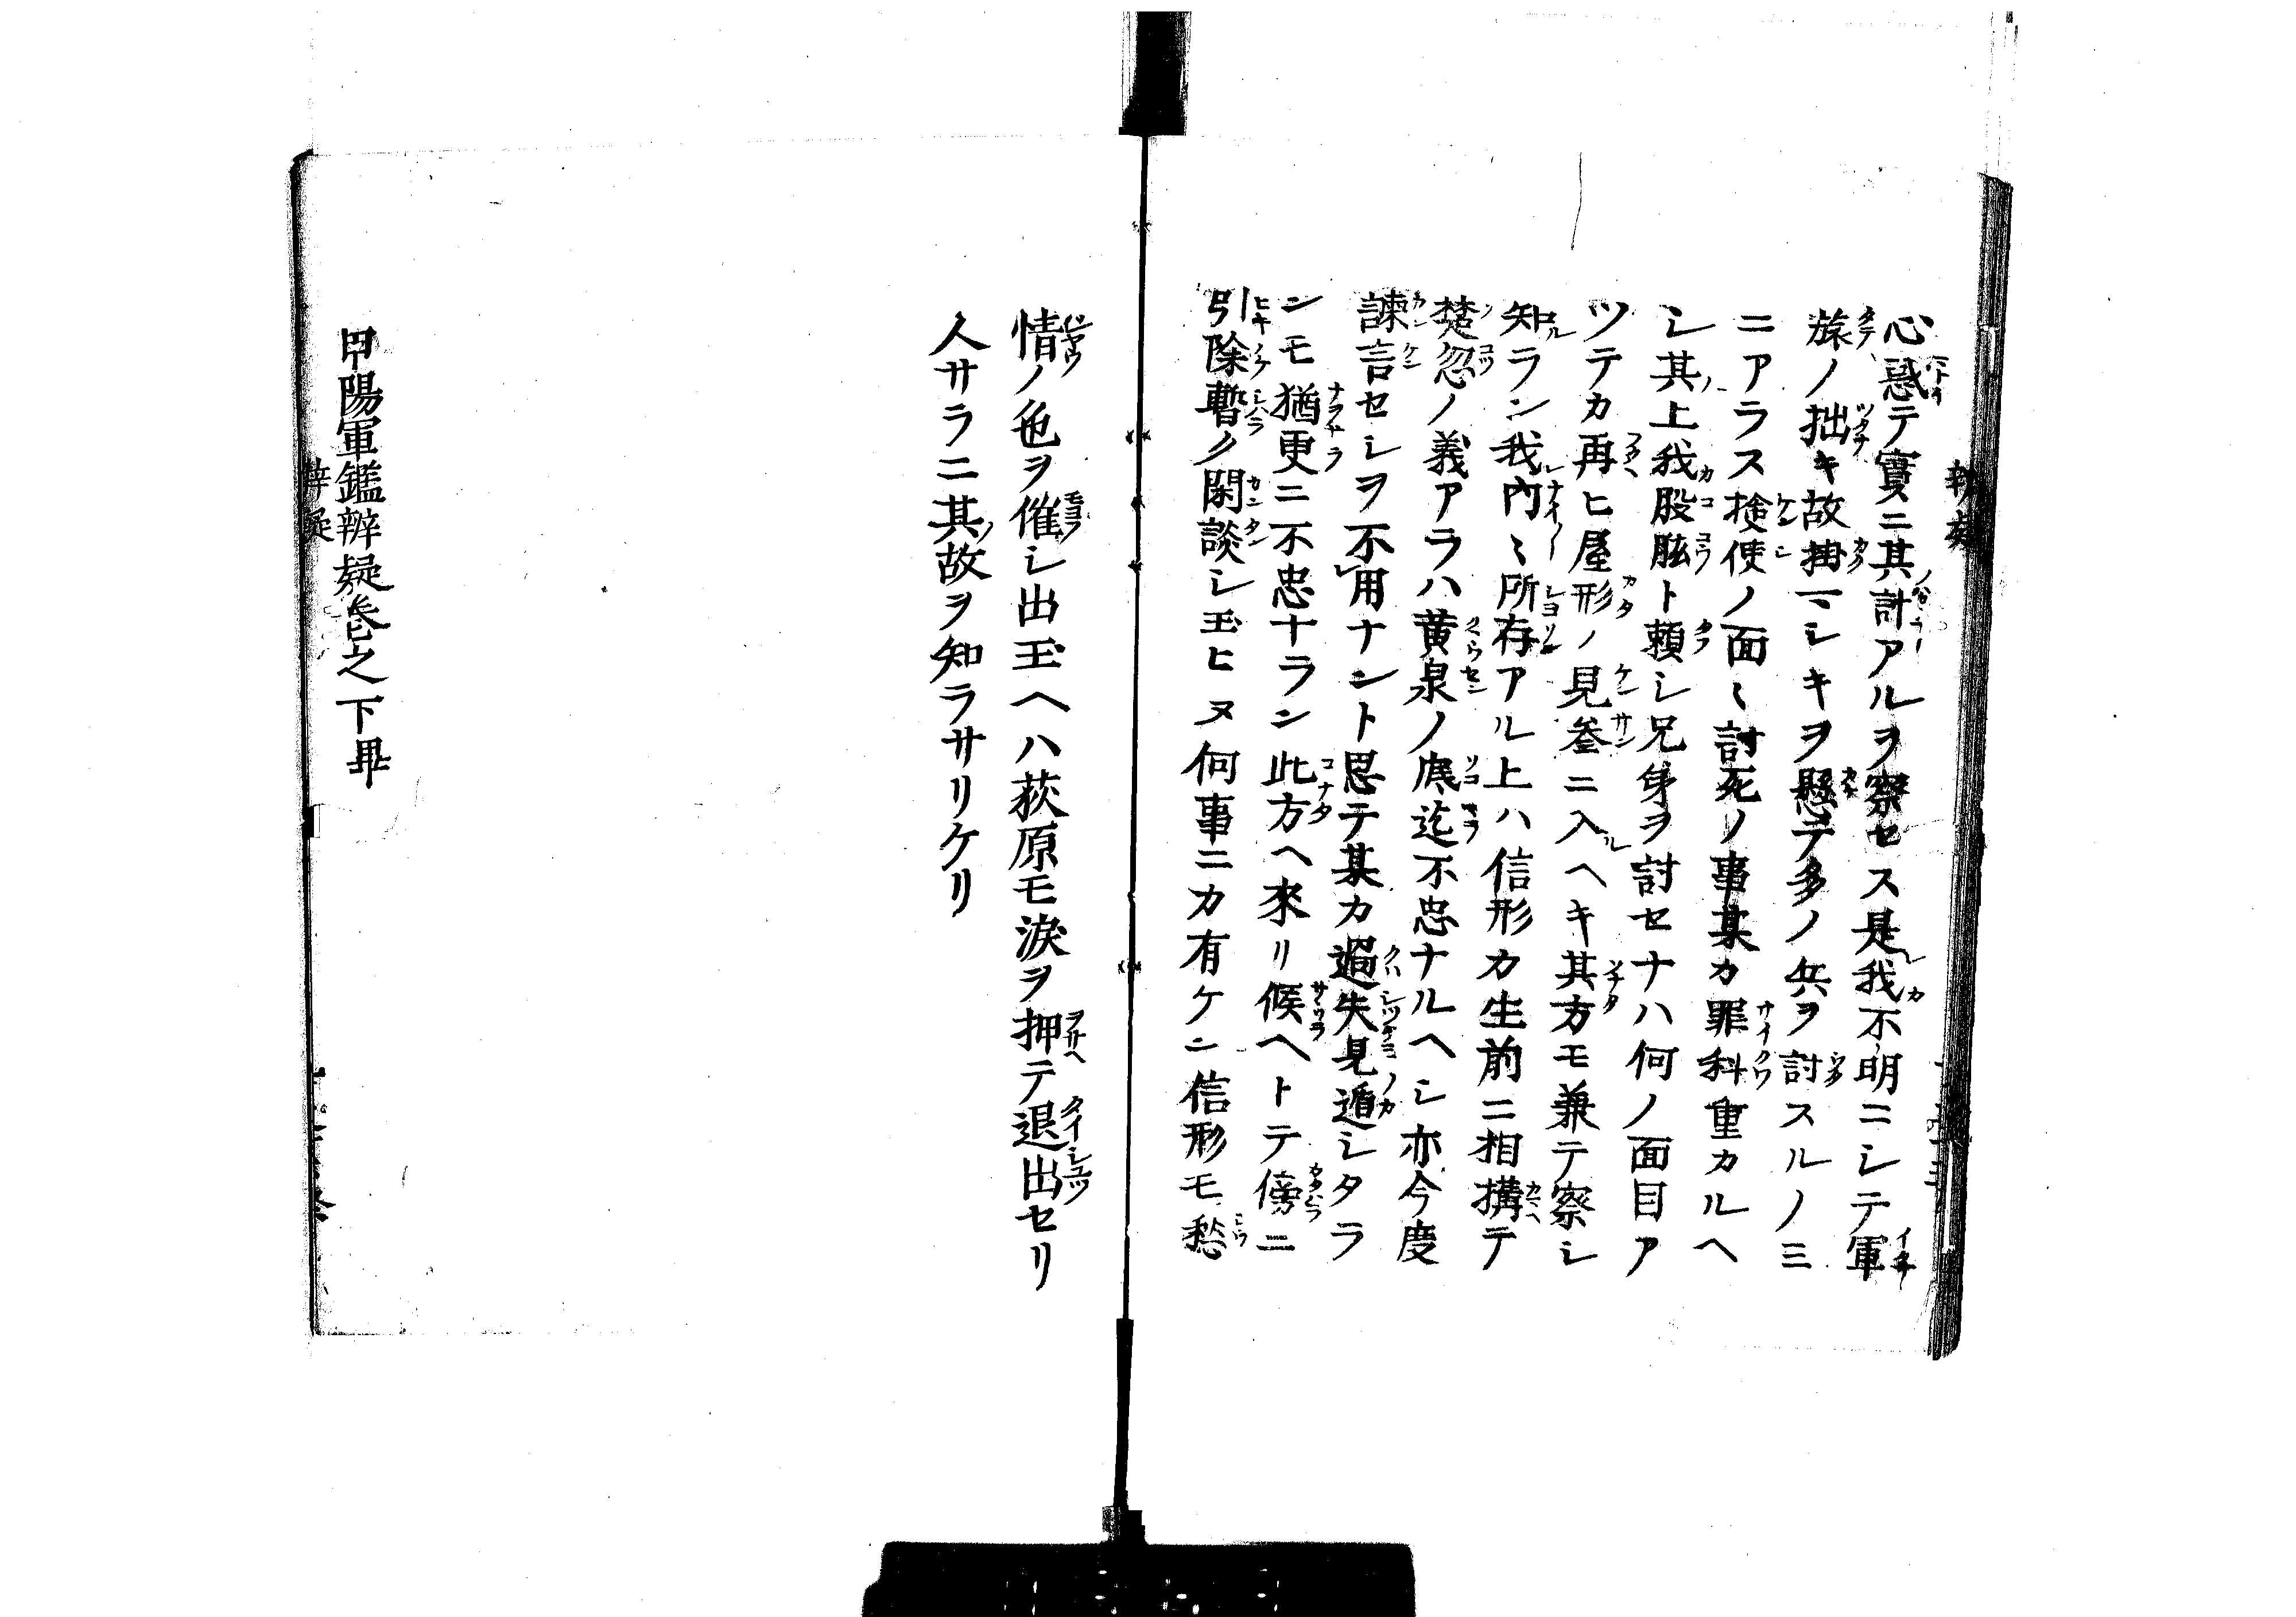 心惑テ實ニ其計アルヲ察セス是我不明ニシテ軍
旅ノ拙キ故掛マシキヲ懸テ多ノ兵ヲ討スルノミ
ニアラス撿使ノ面〻討死ノ事某カ罪科重カルヘ
シ其上我股肱ト頼シ兄弟ヲ討セナハ何ノ面目ア
ツテカ再ヒ屋形ノ見叅ニ入ヘキ其方モ兼テ察シ
知ラン我内〻所存アル上ハ信形カ生前ニ相搆テ
楚忽ノ義アラハ黄泉ノ底迄不忠ナルヘシ亦今度
諫言セシヲ不用ナント思テ某カ過失見遁シタラ
ンモ猶更ニ不忠ナラン此方ヘ來リ候ヘトテ傍ニ
引除暫ク閑談シ玉ヒヌ何事ニカ有ケン信形モ愁
情ノ色ヲ催シ出玉ヘハ荻原モ淚ヲ押テ退出セリ
人サラニ其故ヲ知ラサリケリ
甲陽軍鑑辨疑巻之下畢